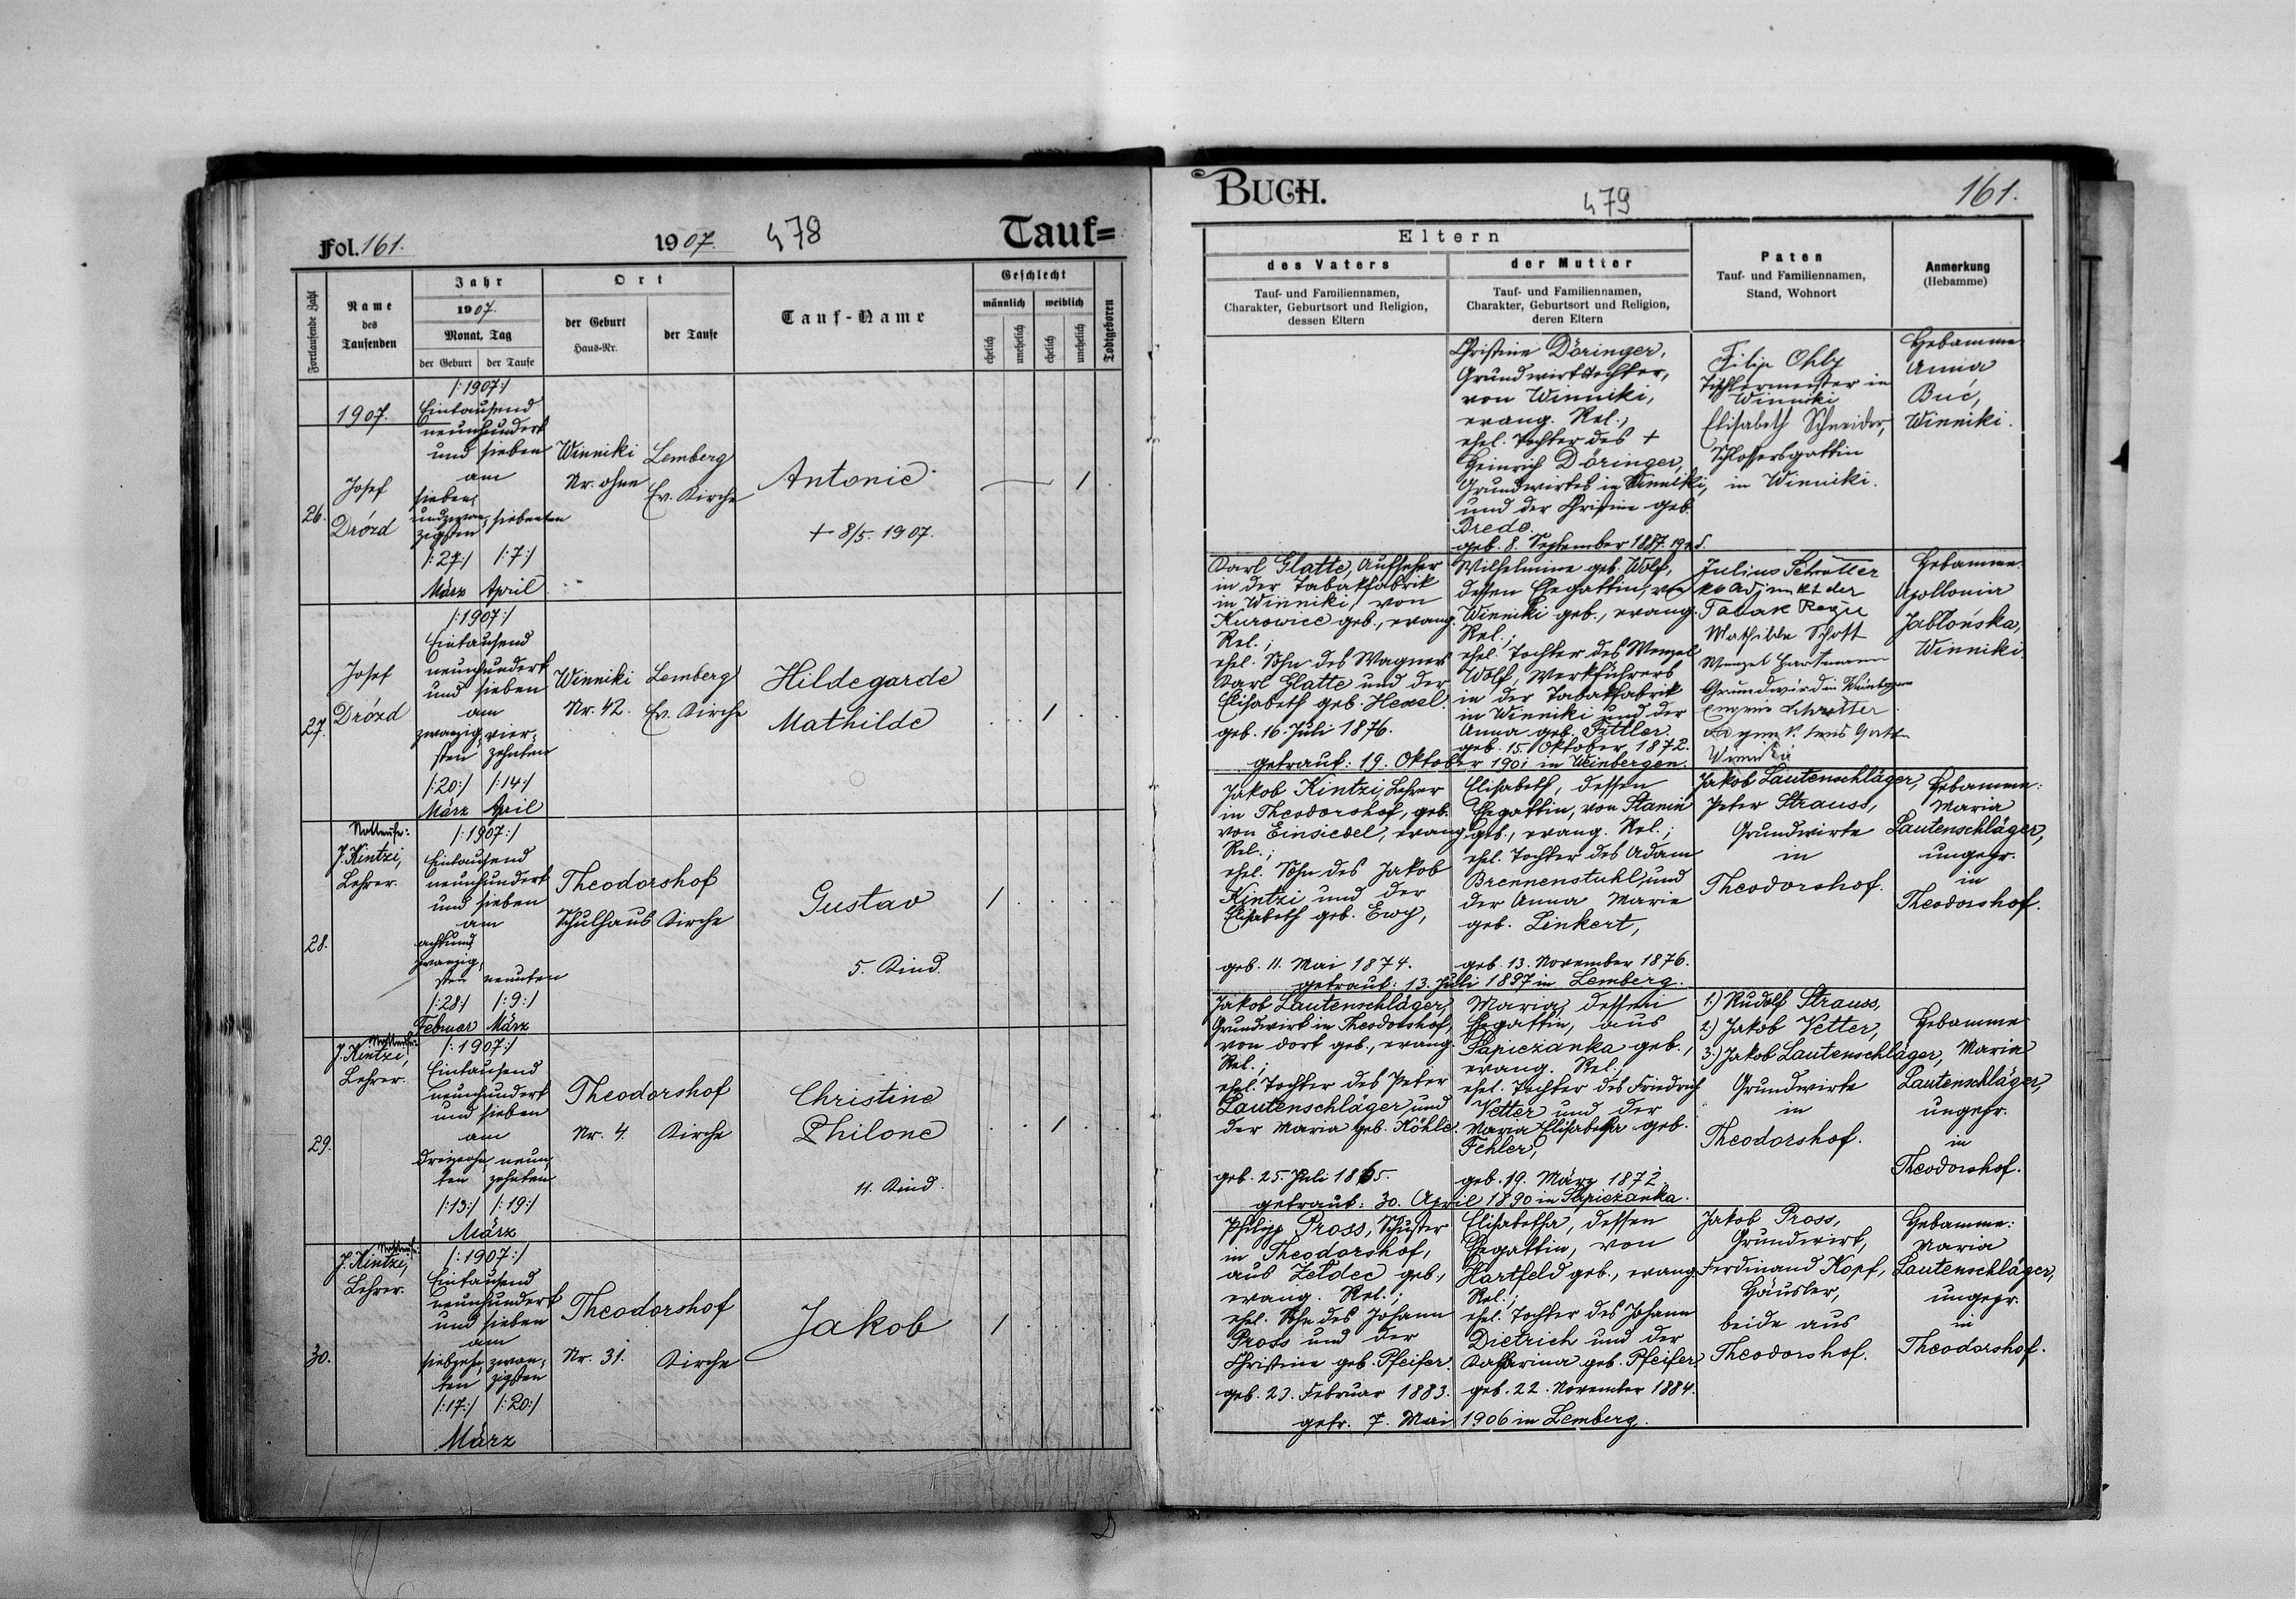 Fol. 161.
1907.
478
Tauf=
Fortlaufende Zahl
Name
des
Taufenden
Jahr
1907.
Monat, Tag
der Geburt
der Taufe
Ort
der Geburt
Haus-Nr.
der Taufe
Tauf-Name
Geschlecht
männlich
weiblich
ehelich
unehelich
ehelich
unehelich
Todtgeboren
1907.
26.
Josef
Drózd
/:1907:/
Eintausend
neunhundert
und sieben
am
sieben,
undzwan, siebenten
zigsten
/:27:/ /:7:/
März April
Winniki
Nr. ohne
Lemberg
Ev. Kirche
Antonie
+ 8/5. 1907.
1
27.
Josef
Drózd
/:1907:/
Eintausend
neunhundert
und sieben
am
zwanzig, vier,
sten zehnten
/:20:/ /:14:/
März April
Winniki
Nr. 42.
Lemberg
Ev. Kirche
Hildegarde
Mathilde
1
28.
Nottaufe:
J. Kintzi,
Lehrer.
/:1907:/
Eintausend
neunhundert
und sieben
am
achtund,
zwanzig,
sten neunten
/:28:/ /:9:/
Februar März
Theodorshof
Schulhaus Kirche
Gustav
5. Kind.
1
29.
Nottaufe:
J. Kintzi,
Lehrer.
/:1907:/
Eintausend
neunhundert
und sieben
am
dreizehn, neun,
ten zehnten
/:13:/ /:19:/
März
Theodorshof
Nr. 4. Kirche
Christine
Philone
11. Kind.
1
30.
Nottaufe:
J. Kintzi,
Lehrer.
/:1907:/
Eintausend
neunhundert
und sieben
am
siebzehn, zwan,
ten zigsten
/:17:/ /:20:/
März
Theodorshof
Nr. 31. Kirche
Jakob
1
BUCH.
479
161.
Eltern
des Vaters
Tauf- und Familiennamen,
Charakter, Geburtsort und Religion,
dessen Eltern
der Mutter
Tauf- und Familiennamen,
Charakter, Geburtsort und Religion,
deren Eltern
Paten
Tauf- und Familiennamen,
Stand, Wohnort
Anmerkung
(Hebamme)
Christine Döringer,
Grundwirtstochter,
von Winniki,
evang. Rel.,
ehel. Tochter des +
Heinrich Döringer,
Grundwirtes in Winniki,
und der Christine geb.
Bredo.
geb. 8. September 1887.
Filip Ohly
Tischlermeister in
Winniki
Elisabeth Schneider,
Schlossersgattin
in Winniki.
Hebamme
Anna
Buć,
Winniki.
Karl Glatte, Aufseher
in der Tabakfabrik
in Winniki, von
Kurowice geb., evang.
Rel.;
ehel. Sohn des Wagners
Karl Glatte und der
Elisabeth geb. Hexel.
geb. 16. Juli 1876.
Wilhelmine geb. Wolf,
dessen Ehegattin, von
Winniki geb., evang.
Rel.;
ehel. Tochter des Wenzel
Wolf, Werkführers
in der Tabakfabrik
in Winniki und der
Anna geb. Fittler.
geb. 15. Oktober 1872.
getraut: 19. Oktober 1901 in Weinbergen.
Julius Schrotter
kk Adjunkt der
Tabak Regie
Mathilde Schott
Wenzel Hartmann
Grundwird in Weinbergen
Eugenie Schrotter
Winniki
Hebamme:
Apollonia
Jabłońska,
Winniki.
Jakob Kintzi, Lehrer
in Theodorshof, geb.
von Einsiedel, evang.
Rel.;
ehel. Sohn des Jakob
Kintzi und der
Elisabeth geb. Ewy,
geb. 11. Mai 1874.
Elisabeth, dessen
Ehegattin, von Stanin
geb., evang. Rel.;
ehel. Tochter des Adam
Brennenstuhl, und
der Anna Marie
geb. Linkert,
geb. 13. November 1876.
getraut: 13. Juli 1897 in Lemberg.
Jakob Lautenschläger,
Peter Strauss,
Grundwirte
in
Theodorshof.
Hebamme:
Maria
Lautenschläger,
ungepr.
in
Theodorshof.
Jakob Lautenschläger,
Grundwirt in Theodorshof,
von dort geb., evang.
Rel.;
ehel. Tochter des Peter
Lautenschläger und
der Maria geb. Köhle.
geb. 25. Juli 1865.
Maria, dessen
Ehegattin, aus
Sapiezanka geb.,
evang. Rel.,
ehel. Tochter des Friedrich
Vetter und der
Maria Elisabetha geb.
Fehler,
geb. 19. März 1872.
getraut: 30. April 1890 in Sapiezanka.
1.) Rudolf Strauss,
2.) Jakob Vetter,
3.) Jakob Lautenschläger,
Grundwirte
in
Theodorshof.
Hebamme
Maria
Lautenschläger,
ungepr.
in
Theodorshof.
Philipp Pross, Schuster
in Theodorshof,
aus Zeldec geb.,
evang. Rel.;
ehel. Sohn des Johann
Pross und der
Christine geb. Pfeifer.
geb. 23. Februar 1883.
Elisabetha, dessen
Ehegattin, von
Hartfeld geb., evang.
Rel.;
ehel. Tochter des Johann
Dietrich und der
Katharina geb. Pfeifer
geb. 22. November 1884.
getr. 7. Mai 1906 in Lemberg.
Jakob Pross,
Grundwirt,
Ferdinand Kopf,
Häusler,
beide aus
Theodorshof.
Hebamme:
Maria
Lautenschläger,
ungepr.
in
Theodorshof.